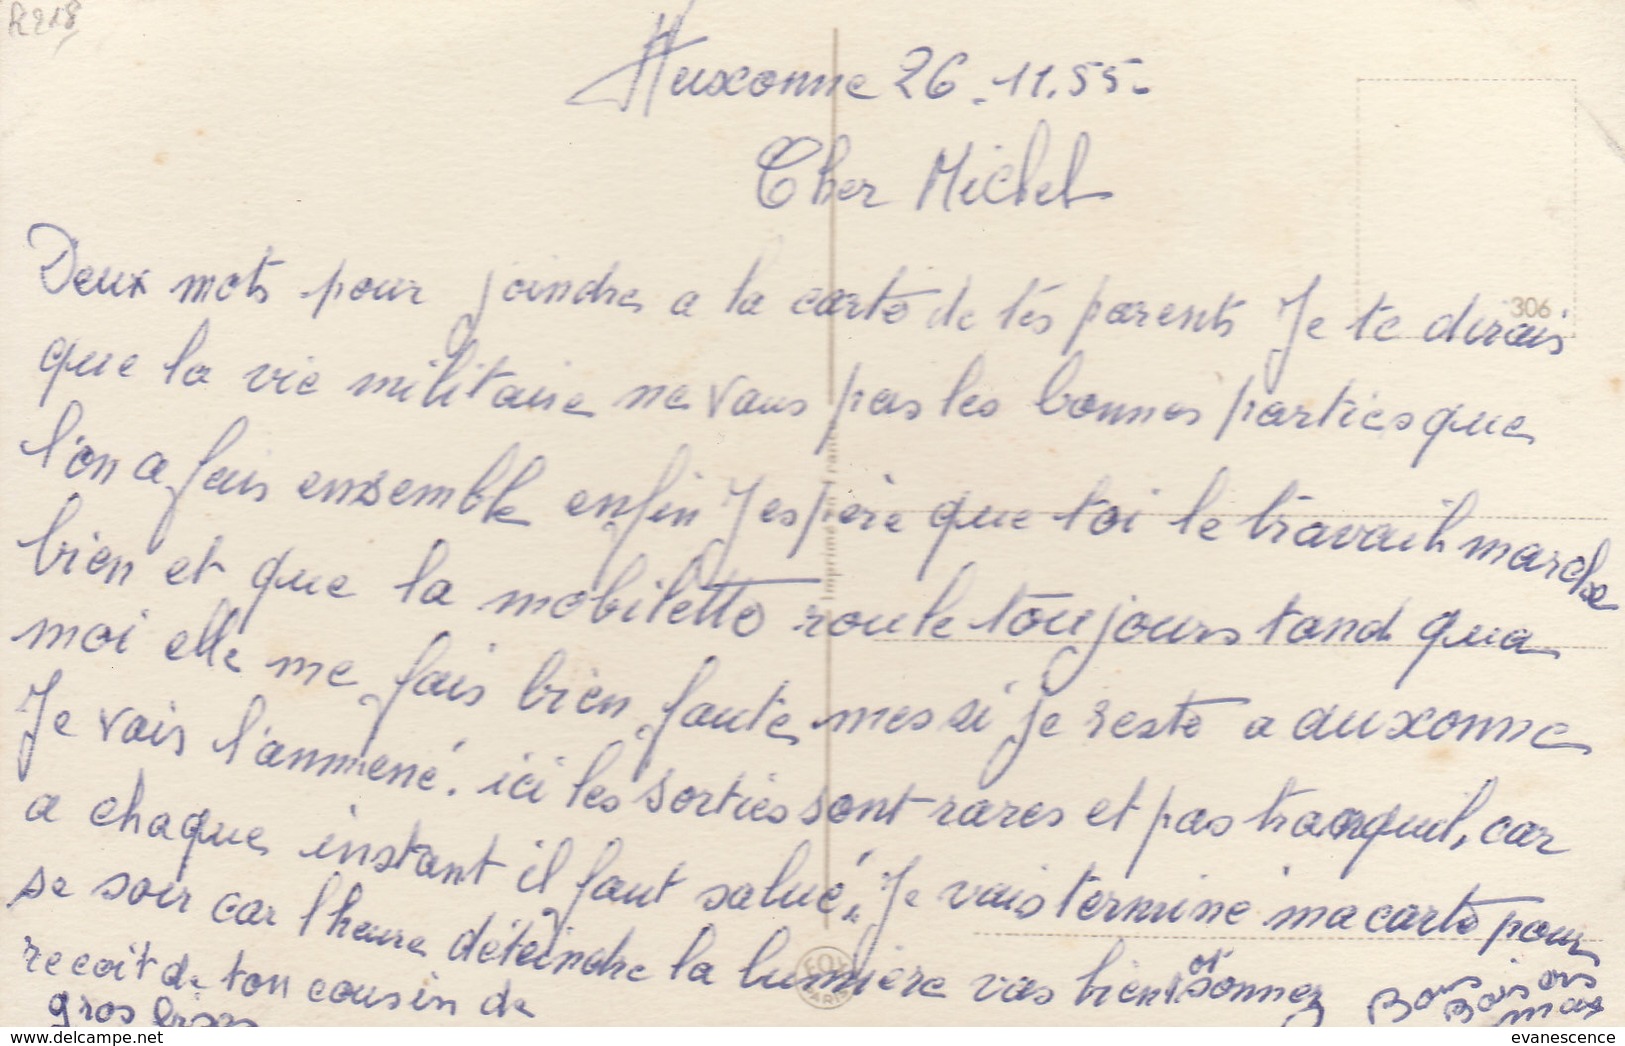 R218
Auxonne 26.11.55.
Cher Michel
Deux mots pour joindre a la carte de tes parents Je te dirais
306
que la vie militaire ne vaus pas les bonnes parties que
l'on a fais ensemble enfin J'espère que toi le travail marche
Imprimé en France
bien et que la mobilette roule toujours tand qua
moi elle me fais bien faute mes si je reste a auxonne
Je vais l'ammené. ici les sorties sont rares et pas tranquil, car
a chaque instant il faut salué. Je vais terminé ma carte pour
se soir car l'heure déteindre la lumière vas bientot sonnez
recoit de ton cousin de
gros bises
Bons Baisors
max
PARIS
evanescence